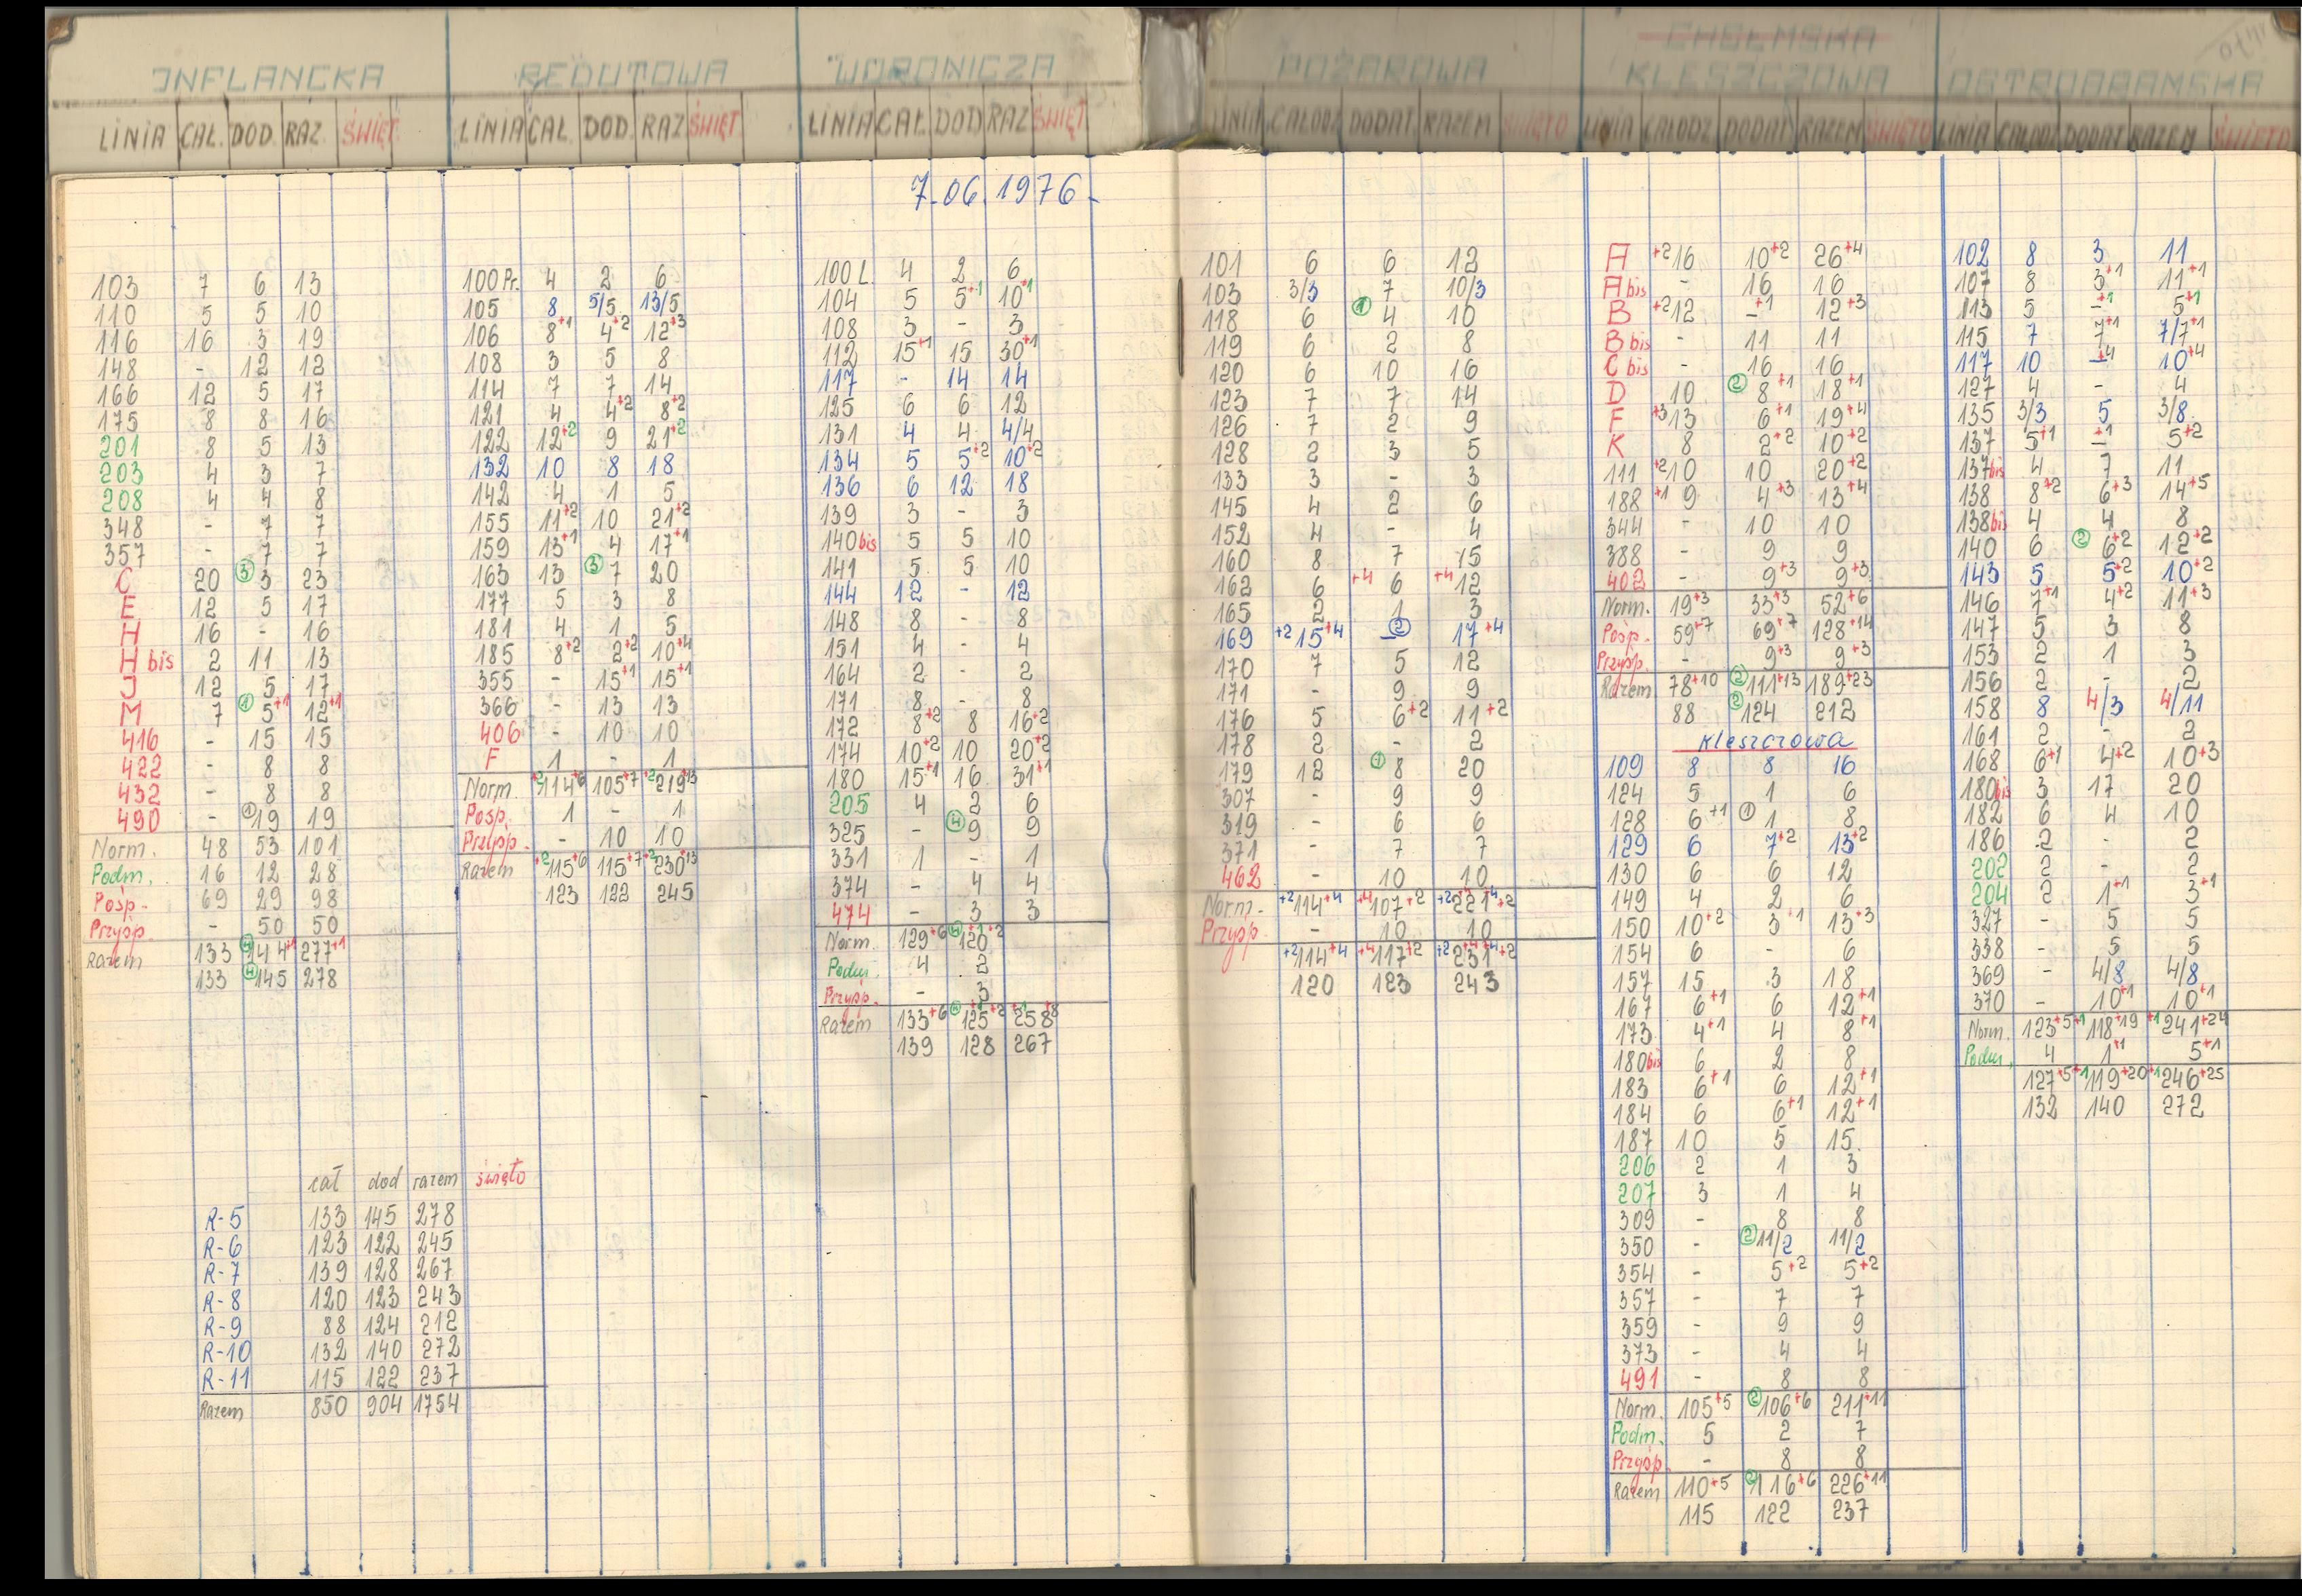 INFLANCKA
LINIA CAŁ. DOD. RAZ. ŚWIĘT.
103 7 6 13
110 5 5 10
116 16 3 19
148 - 12 12
166 12 5 17
175 8 8 16
201 8 5 13
203 4 3 7
208 4 4 8
348 - 7 7
357 - 7 7
C 20 (3) 3 23
E 12 5 17
H 16 - 16
H bis 2 11 13
J 12 5 17
M 7 (1) 5+1 12+1
416 - 15 15
422 - 8 8
432 - 8 8
490 - (1) 19 19
Norm. 48 53 101
Podm. 16 12 28
Pośp. 69 29 98
Przysp. - 50 50
Razem 133 (4) 144+1 277+1
133 (4) 145 278
cał dod razem święto
R-5 133 145 278
R-6 123 122 245
R-7 139 128 267
R-8 120 123 243
R-9 88 124 212
R-10 132 140 272
R-11 115 122 237
Razem 850 904 1754
REDUTOWA
LINIA CAŁ DOD. RAZ ŚWIĘT.
100 Pr. 4 2 6
105 8 5/5 13/5
106 8+1 4+2 12+3
108 3 5 8
114 7 7 14
121 4 4+2 8+2
122 12+2 9 21+2
132 10 8 18
142 4 1 5
155 11+2 10 21+2
159 13+1 4 17+1
163 13 (3) 7 20
177 5 3 8
181 4 1 5
185 8+2 2+2 10+4
355 - 15+1 15+1
366 - 13 13
406 - 10 10
F 1 - 1
Norm. +2 114+6 105+7 +2 219+13
Posp. 1 - 1
Przysp. - 10 10
Razem +2 115+6 115+7 +2 230+13
123 122 245
WORONICZA
LINIA CAŁ DOD RAZ ŚWIĘT
7.06.1976
100 L. 4 2 6
104 5 5+1 10+1
108 3 - 3
112 15+1 15 30+1
117 - 14 14
125 6 6 12
131 4 4 4/4
134 5 5+2 10+2
136 6 12 18
139 3 - 3
140 bis 5 5 10
141 5 5 10
144 12 - 12
148 8 - 8
151 4 - 4
164 2 - 2
171 8 - 8
172 8+2 8 16+2
174 10+2 10 20+2
180 15+1 16 31+1
205 4 2 6
325 - (4) 9 9
331 1 - 1
374 - 4 4
474 - 3 3
Norm. 129+6 (4) 120+1+2
Podm. 4 2
Przysp. - 3
Razem 133+6 125+1+2 +1 258+8
139 128 267
POŻAROWA
LINIA CAŁODZ DODAT. RAZEM ŚWIĘTO
101 6 6 12
103 3/3 7 10/3
118 6 (1) 4 10
119 6 2 8
120 6 10 16
123 7 7 14
126 7 2 9
128 2 3 5
133 3 - 3
145 4 2 6
152 4 - 4
160 8 7 15
162 6 +4 6 +4 12
165 2 1 3
169 +2 15+4 - (2) 17+4
170 7 5 12
171 - 9 9
176 5 6+2 11+2
178 2 - 2
179 12 (1) 8 20
307 - 9 9
319 - 6 6
371 - 7 7
462 - 10 10
Norm. +2 114+4 +4 107+2 +2 221+4+2
Przysp. - 10 10
+2 114+4 +4 117+2 +2 231+4+4+2
120 123 243
CHEŁMSKA
KLESZCZOWA
LINIA CAŁODZ. DODAT. RAZEM ŚWIĘTO
A +2 16 10+2 26+4
A bis - 16 16
B +2 12 -+1 12+3
B bis - 11 11
C bis - 16 16
D 10 (2) 8+1 18+1
F +3 13 6+1 19+4
K 8 2+2 10+2
111 +2 10 10 20+2
188 +1 9 4+3 13+4
344 - 10 10
388 - 9 9
402 - 9+3 9+3
Norm. 19+3 33+3 52+6
Pośp. 59+7 69+7 128+14
Przysp. - 9+3 9+3
Razem 78+10 (2) 111+13 189+23
88 (2) 124 212
Kleszczowa
109 8 8 16
124 5 1 6
128 6+1 (1) 1 8
129 6 7+2 13+2
130 6 6 12
149 4 2 6
150 10+2 3+1 13+3
154 6 - 6
157 15 3 18
167 6+1 6 12+1
173 4+1 4 8+1
180 bis 6 2 8
183 6+1 6 12+1
184 6 6+1 12+1
187 10 5 15
206 2 1 3
207 3 1 4
309 - 8 8
350 - (2) 11/2 11/2
354 - 5+2 5+2
357 - 7 7
359 - 9 9
373 - 4 4
491 - 8 8
Norm. 105+5 (2) 106+6 211+11
Podm. 5 2 7
Przysp. - 8 8
Razem 110+5 (2) 116+6 226+11
115 122 237
OSTROBRAMSKA
LINIA CAŁODZ DODAT RAZEM ŚWIĘTO
102 8 3 11
107 8 3+1 11+1
113 5 -+1 5+1
115 7 7+1 7/7+1
117 10 -+4 10+4
127 4 - 4
135 3/3 5 3/8
137 5+1 -+1 5+2
137 bis 4 7 11
138 8+2 6+3 14+5
138 bis 4 4 8
140 6 (2) 6+2 12+2
143 5 5+2 10+2
146 7+1 4+2 11+3
147 5 3 8
153 2 1 3
156 2 - 2
158 8 4/3 4/11
161 2 - 2
168 6+1 4+2 10+3
180 bis 3 17 20
182 6 4 10
186 2 - 2
202 2 - 2
204 2 1+1 3+1
327 - 5 5
338 - 5 5
369 - 4/8 4/8
370 - 10+1 10+1
Norm. 123+5 +1 118+19 +1 241+24
Podm. 4 1+1 5+1
127+5 +1 119+20 +1 246+25
132 140 272